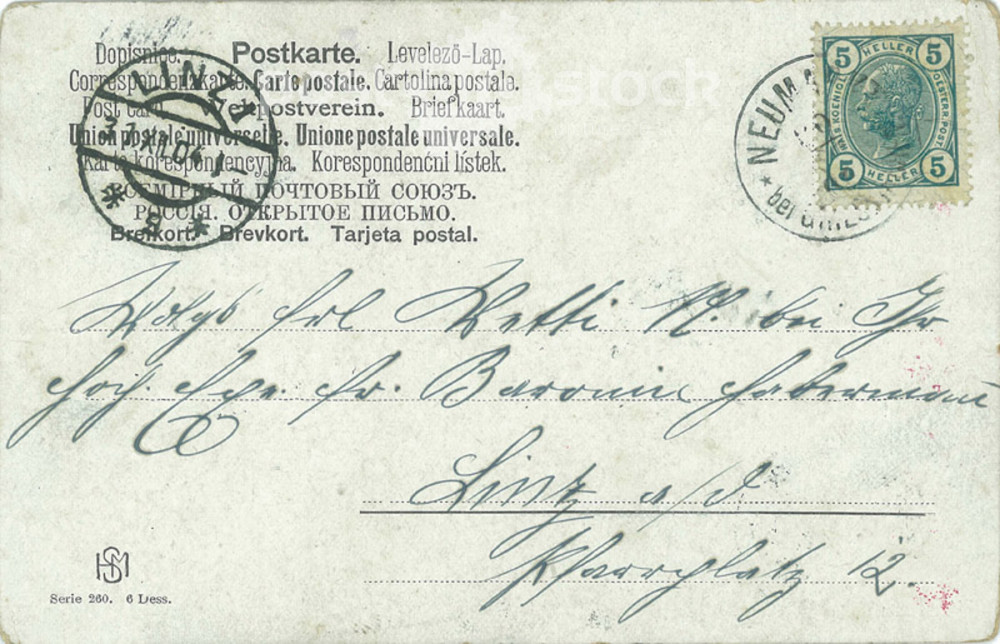 Dopisnice. Postkarte. Levelező-Lap.
Correspondenzkarte. Carte postale. Cartolina postale.
Post card. Weltpostverein. Briefkaart.
Union postale universelle. Unione postale universale.
Karta korespondencyjna. Korespondenční lístek.
ВСЕМІРНЫЙ ПОЧТОВЫЙ СОЮЗЪ.
РОССІЯ. ОТКРЫТОЕ ПИСЬМО.
Brefkort. Brevkort. Tarjeta postal.
LINZ
NEUM
bei
5 HELLER 5
5 HELLER 5
Frl Betti N. bei Ihr
fr. Baronin Haberman
Linz a/d
Pfarrplatz 12.
HSM
Serie 260. 6 Dess.